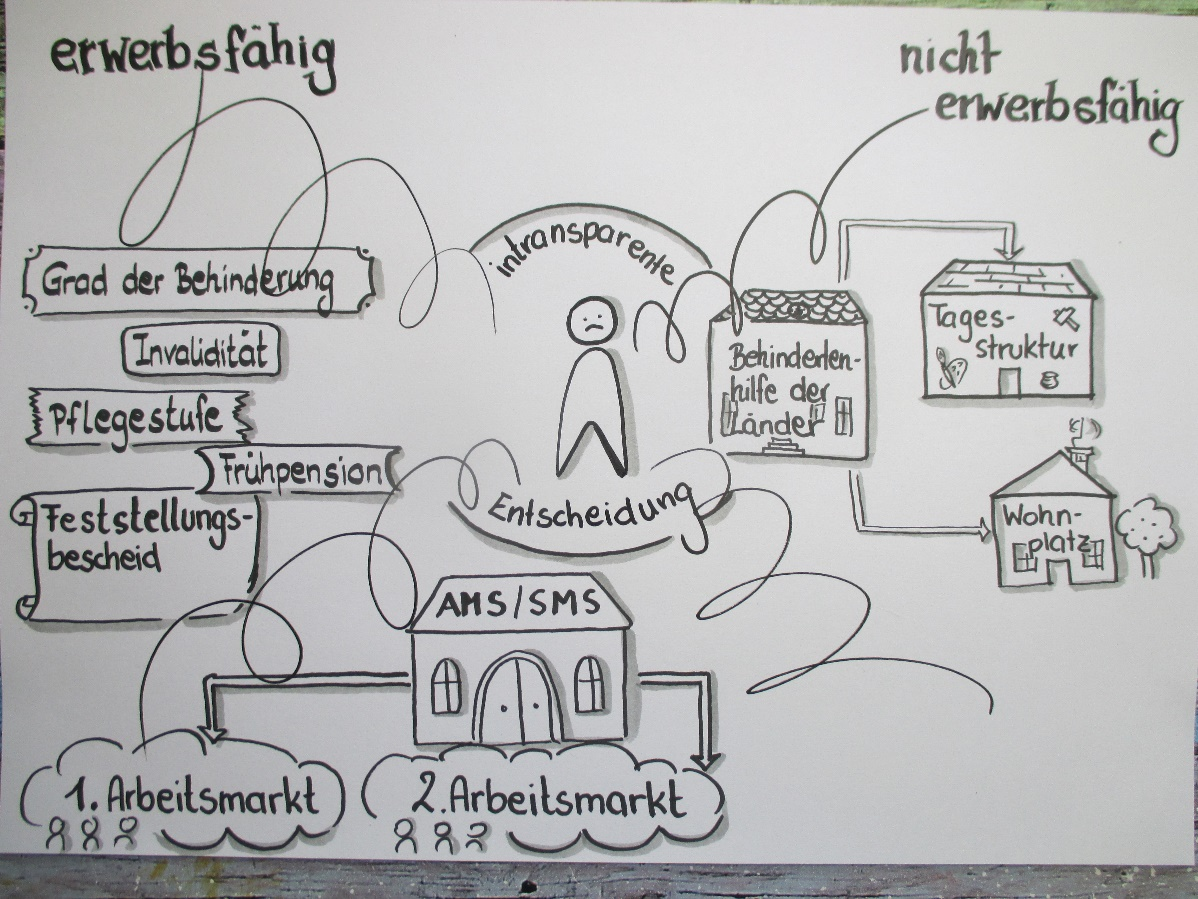 erwerbsfähig
nicht
erwerbsfähig
Grad der Behinderung
Invalidität
Pflegestufe
Frühpension
Feststellungs-
bescheid
intransparente
Entscheidung
Behinderten-
hilfe der
Länder
Tages-
struktur
Wohn-
platz
AMS/SMS
1. Arbeitsmarkt
2. Arbeitsmarkt